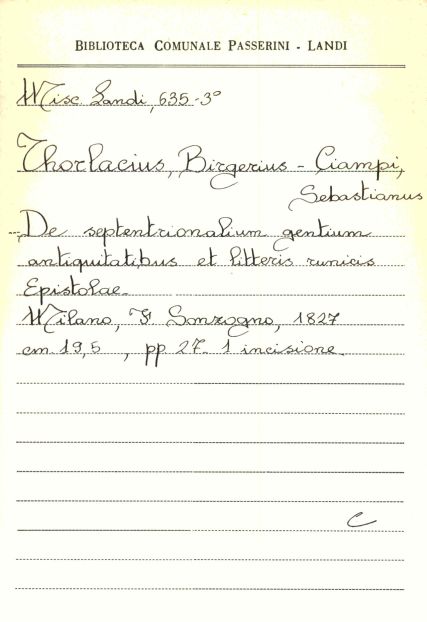 BIBLIOTECA COMUNALE PASSERINI - LANDI
Misc. Landi, 635-3°
Thorlacius, Birgerius - Ciampi,
Sebastianus
De septentrionalium gentium
antiquitatibus et litteris runicis
Epistolae.
Milano, F. Sonzogno, 1827
cm. 19,5 , pp 27. 1 incisione.
C